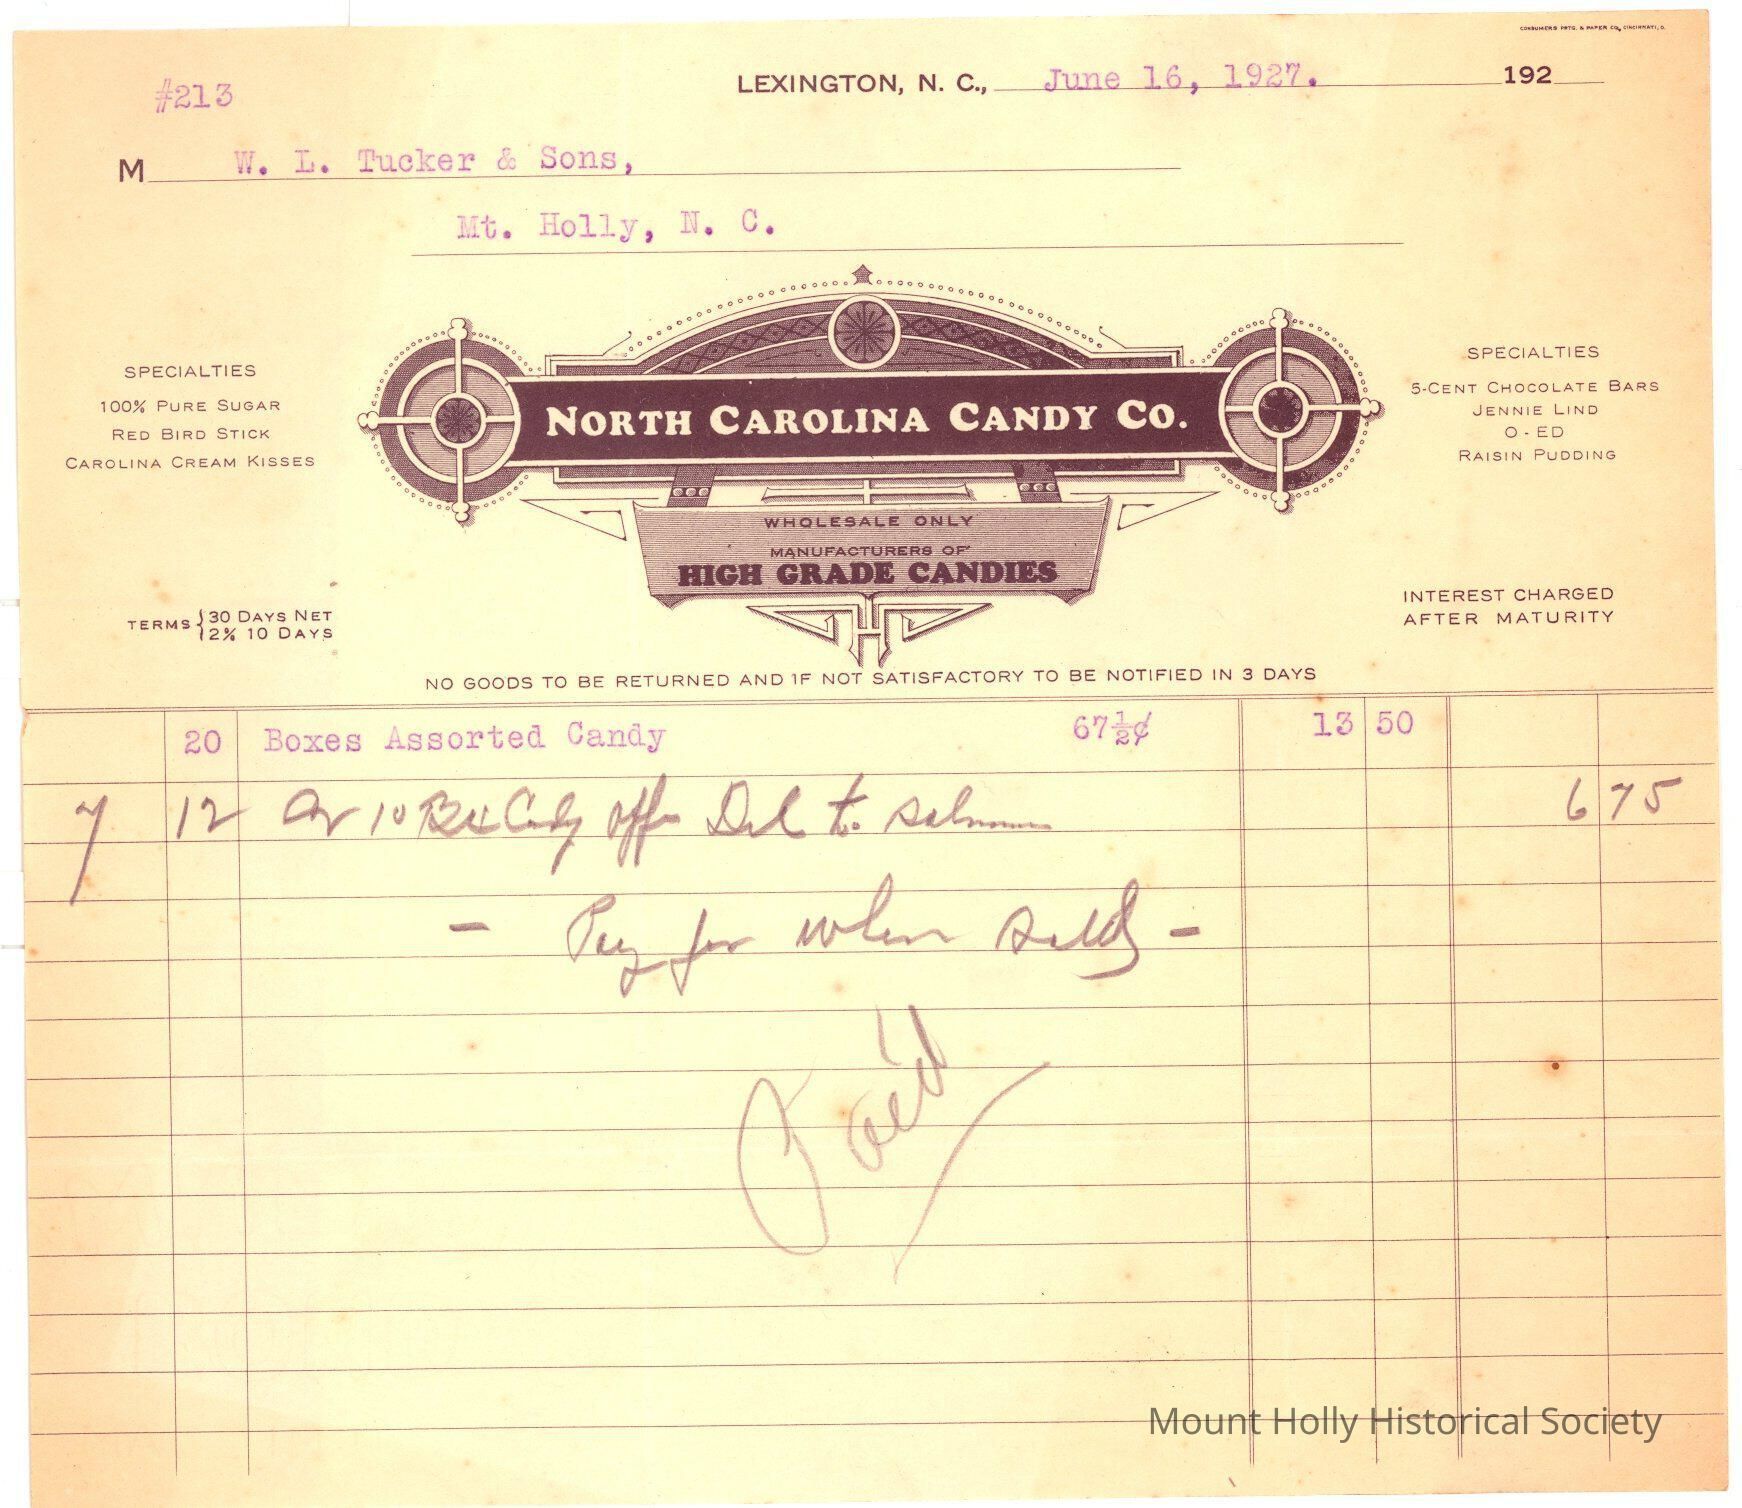 CONSUMERS PRTG. & PAPER CO., CINCINNATI, O.
#213
LEXINGTON, N. C., June 16, 1927. 192
M W. L. Tucker & Sons,
Mt. Holly, N. C.
SPECIALTIES
100% PURE SUGAR
RED BIRD STICK
CAROLINA CREAM KISSES
NORTH CAROLINA CANDY CO.
WHOLESALE ONLY
MANUFACTURERS OF
HIGH GRADE CANDIES
SPECIALTIES
5-CENT CHOCOLATE BARS
JENNIE LIND
O-ED
RAISIN PUDDING
TERMS { 30 DAYS NET
2% 10 DAYS
INTEREST CHARGED
AFTER MATURITY
NO GOODS TO BE RETURNED AND IF NOT SATISFACTORY TO BE NOTIFIED IN 3 DAYS
20 Boxes Assorted Candy 67½¢ 13 50
7 12 10 Bx Candy Del to 6 75
- Pay for when sold -
Paid
Mount Holly Historical Society